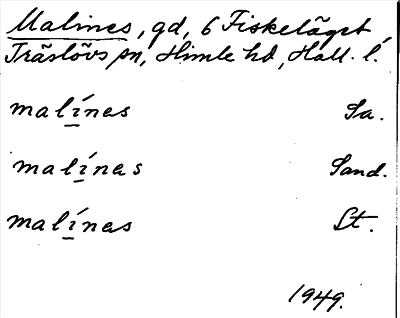 Malines, gd, 6 Fiskeläget
Träslövs sn, Himle hd, Hall. l.
malínes Sa.
malínes Sand.
malínes St.
1949.